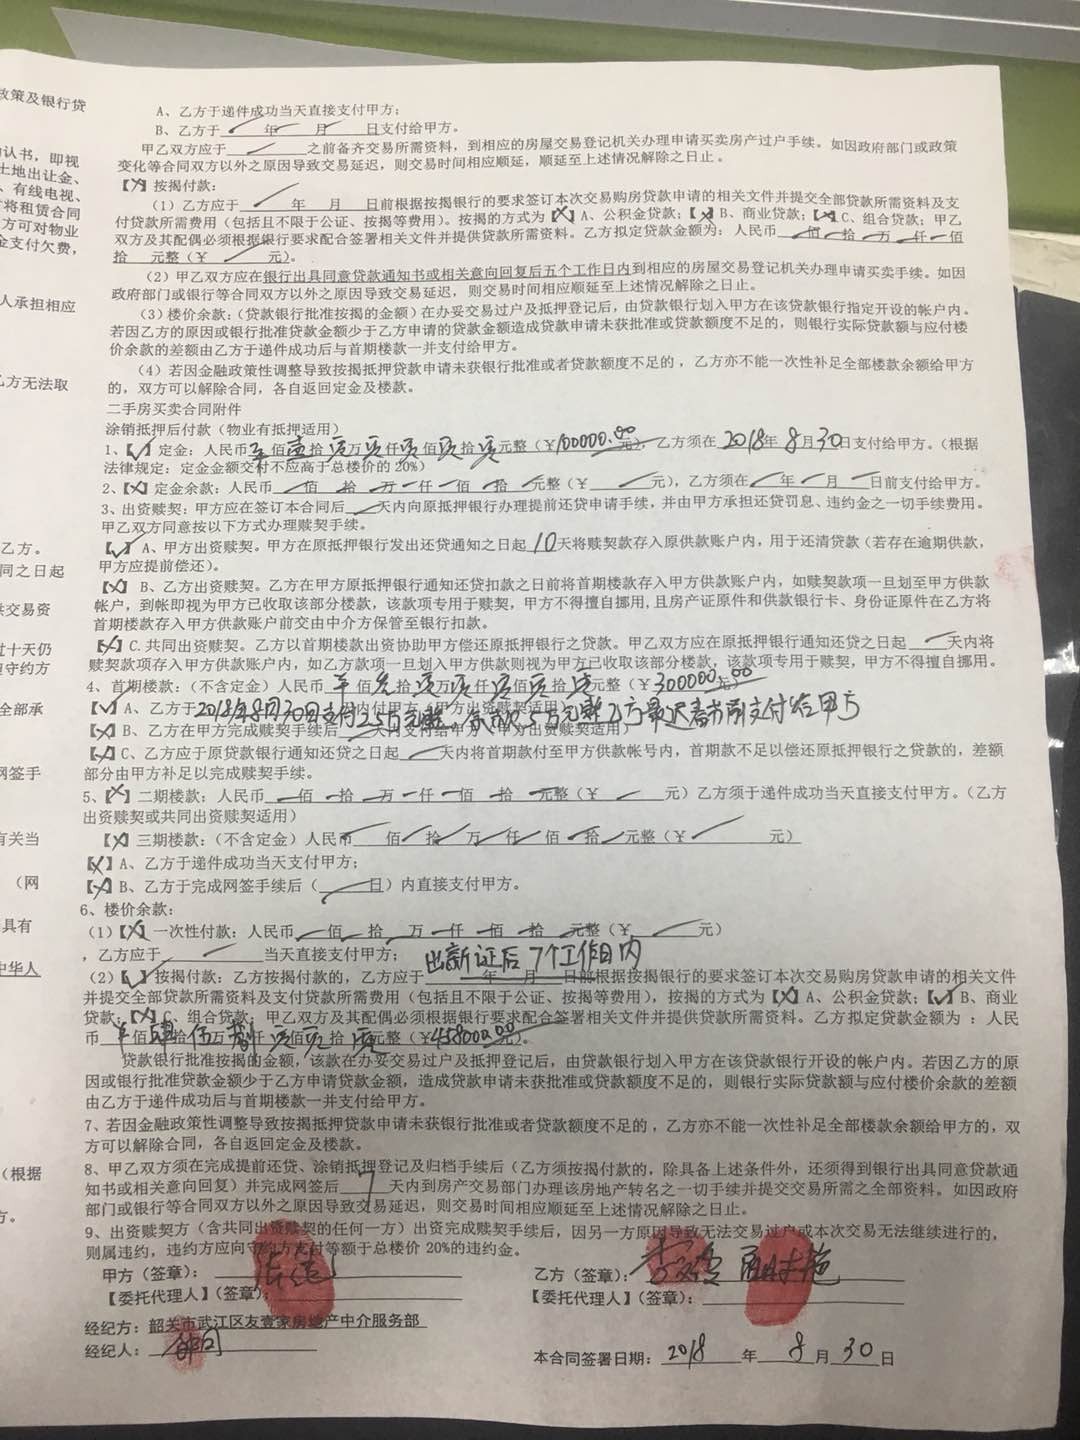 政策及银行贷
认书，即视
土地出让金、
、有线电视、
将租赁合同
方可对物业
金支付欠费，
人承担相应
乙方无法取
乙方。
同之日起
共交易资
过十天仍
守约方
全部承
网签手
有关当
（网
具有
中华人
（根据
方。
A、乙方于递件成功当天直接支付甲方；
B、乙方于 年 月 日支付给甲方。
甲乙双方应于 之前备齐交易所需资料，到相应的房屋交易登记机关办理申请买卖房产过户手续。如因政府部门或政策
变化等合同双方以外之原因导致交易延迟，则交易时间相应顺延，顺延至上述情况解除之日止。
【X】按揭付款：
（1）乙方应于 年 月 日前根据按揭银行的要求签订本次交易购房贷款申请的相关文件并提交全部贷款所需资料及支
付贷款所需费用（包括且不限于公证、按揭等费用）。按揭的方式为【X】A、公积金贷款；【X】B、商业贷款；【X】C、组合贷款；甲乙
双方及其配偶必须根据银行要求配合签署相关文件并提供贷款所需资料。乙方拟定贷款金额为：人民币 佰 拾 万 仟 佰
拾 元整（¥ 元）。
（2）甲乙双方应在银行出具同意贷款通知书或相关意向回复后五个工作日内到相应的房屋交易登记机关办理申请买卖手续。如因
政府部门或银行等合同双方以外之原因导致交易延迟，则交易时间相应顺延至上述情况解除之日止。
（3）楼价余款：（贷款银行批准按揭的金额）在办妥交易过户及抵押登记后，由贷款银行划入甲方在该贷款银行指定开设的帐户内。
若因乙方的原因或银行批准贷款金额少于乙方申请的贷款金额造成贷款申请未获批准或贷款额度不足的，则银行实际贷款额与应付楼
价余款的差额由乙方于递件成功后与首期楼款一并支付给甲方。
（4）若因金融政策性调整导致按揭抵押贷款申请未获银行批准或者贷款额度不足的，乙方亦不能一次性补足全部楼款余额给甲方
的，双方可以解除合同，各自返回定金及楼款。
二手房买卖合同附件
涂销抵押后付款（物业有抵押适用）
1、【√】定金：人民币 佰壹拾零万零仟零佰零拾零元整（¥100000.00元），乙方须在2018年8月30日支付给甲方。（根据
法律规定：定金金额交付不应高于总楼价的 20%）
2、【X】定金余款：人民币 佰 拾 万 仟 佰 拾 元整（¥ 元），乙方须在 年 月 日前支付给甲方。
3、出资赎契：甲方应在签订本合同后 天内向原抵押银行办理提前还贷申请手续，并由甲方承担还贷罚息、违约金之一切手续费用。
甲乙双方同意按以下方式办理赎契手续。
【√】A、甲方出资赎契。甲方在原抵押银行发出还贷通知之日起 10 天将赎契款存入原供款账户内，用于还清贷款（若存在逾期供款，
甲方应提前偿还）。
【X】B、乙方出资赎契。乙方在甲方原抵押银行通知还贷扣款之日前将首期楼款存入甲方供款账户内，如赎契款项一旦划至甲方供款
帐户，到帐即视为甲方已收取该部分楼款，该款项专用于赎契，甲方不得擅自挪用，且房产证原件和供款银行卡、身份证原件在乙方将
首期楼款存入甲方供款账户前交由中介方保管至银行扣款。
【X】C.共同出资赎契。乙方以首期楼款出资协助甲方偿还原抵押银行之贷款。甲乙双方应在原抵押银行通知还贷之日起 天内将
赎契款项存入甲方供款账户内，如乙方款项一旦划入甲方供款则视为甲方已收取该部分楼款，该款项专用于赎契，甲方不得擅自挪用。
4、首期楼款：（不含定金）人民币 佰叁拾零万零仟零佰零拾零元整（¥300000.00元）
【√】A、乙方于2018年8月30日支付25万元整，余款5万元整乙方最迟春节前支付给甲方
【X】B、乙方在甲方完成赎契手续后 天内支付给甲方（甲方出资赎契适用）
【X】C、乙方应于原贷款银行通知还贷之日起 天内将首期款付至甲方供款帐号内，首期款不足以偿还原抵押银行之贷款的，差额
部分由甲方补足以完成赎契手续。
5、【X】二期楼款：人民币 佰 拾 万 仟 佰 拾 元整（¥ 元）乙方须于递件成功当天直接支付甲方。（乙方
出资赎契或共同出资赎契适用）
【X】三期楼款：（不含定金）人民币 佰 拾 万 仟 佰 拾 元整（¥ 元）
【X】A、乙方于递件成功当天支付甲方；
【X】B、乙方于完成网签手续后（ 日）内直接支付甲方。
6、楼价余款：
（1）【X】一次性付款：人民币 佰 拾 万 仟 佰 拾 元整（¥ 元）
，乙方应于 当天直接支付甲方；
出新证后7个工作日内
（2）【√】按揭付款：乙方按揭付款的，乙方应于 年 月 日前根据按揭银行的要求签订本次交易购房贷款申请的相关文件
并提交全部贷款所需资料及支付贷款所需费用（包括且不限于公证、按揭等费用），按揭的方式为【X】A、公积金贷款；【√】B、商业
贷款；【X】C、组合贷款；甲乙双方及其配偶必须根据银行要求配合签署相关文件并提供贷款所需资料。乙方拟定贷款金额为 ：人民
币 佰肆拾伍万捌仟零佰零拾零元整（¥458000.00元）。
贷款银行批准按揭的金额，该款在办妥交易过户及抵押登记后，由贷款银行划入甲方在该贷款银行开设的帐户内。若因乙方的原
因或银行批准贷款金额少于乙方申请贷款金额，造成贷款申请未获批准或贷款额度不足的，则银行实际贷款额与应付楼价余款的差额
由乙方于递件成功后与首期楼款一并支付给甲方。
7、若因金融政策性调整导致按揭抵押贷款申请未获银行批准或者贷款额度不足的，乙方亦不能一次性补足全部楼款余额给甲方的，双
方可以解除合同，各自返回定金及楼款。
8、甲乙双方须在完成提前还贷、涂销抵押登记及归档手续后（乙方须按揭付款的，除具备上述条件外，还须得到银行出具同意贷款通
知书或相关意向回复）并完成网签后 7 天内到房产交易部门办理该房地产转名之一切手续并提交交易所需之全部资料。如因政府
部门或银行等合同双方以外之原因导致交易延迟，则交易时间相应顺延至上述情况解除之日止。
9、出资赎契方（含共同出资赎契的任何一方）出资完成赎契手续后，因另一方原因导致无法交易过户或本次交易无法继续进行的，
则属违约，违约方应向守约方支付等额于总楼价 20%的违约金。
甲方（签章）：
乙方（签章）：
【委托代理人】（签章）：
【委托代理人】（签章）：
经纪方：韶关市武江区友壹家房地产中介服务部
经纪人：
本合同签署日期：2018 年 8 月 30 日